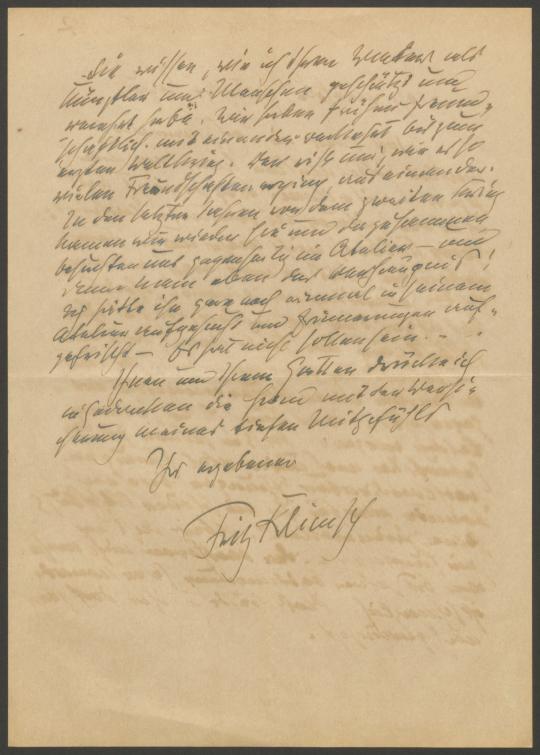 Sie wissen, wie ich Ihren Vater als
Künstler und Menschen geschätzt und
verehrt habe. Wir haben früher freund-
schaftlich miteinander verkehrt bis zum
ersten Weltkrieg. Der riss uns, wie es so
vielen Freundschaften erging auseinander.
In den letzten Jahren vor dem zweiten Krieg
kamen wir wieder hie und da zusammen
besuchten uns gegenseitig im Atelier – und
dann kam eben das Verhängnis!
Ich hätte ihn gern noch einmal in seinem
Atelier aufgesucht und Erinnerungen auf-
gefrischt – Es hat nicht sollen sein. – .
Ihnen und Ihrem Gatten drücke ich
im Gedenken die Hand mit der Versi-
cherung meines tiefen Mitgefühls
Ihr ergebener
Fritz Klimsch